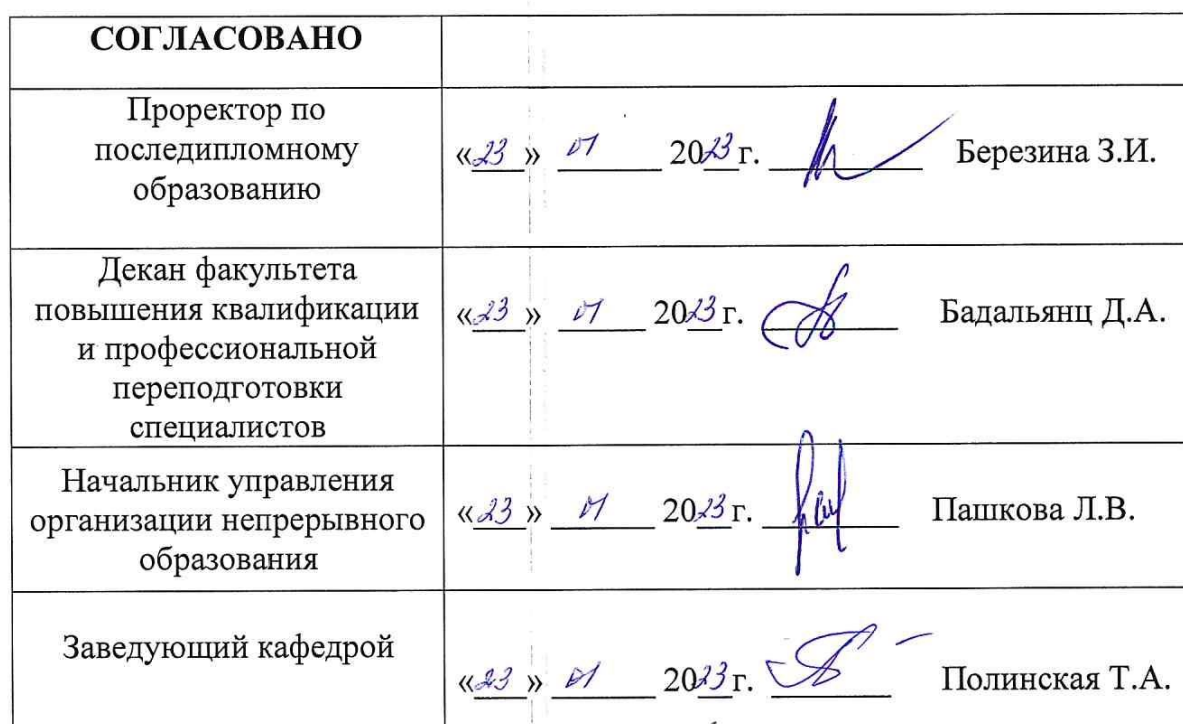 СОГЛАСОВАНО
Проректор по
последипломному
образованию
«23» 01 2023 г. Березина З.И.
Декан факультета
повышения квалификации
и профессиональной
переподготовки
специалистов
«23» 01 2023 г. Бадальянц Д.А.
Начальник управления
организации непрерывного
образования
«23» 01 2023 г. Пашкова Л.В.
Заведующий кафедрой
«23» 01 2023 г. Полинская Т.А.